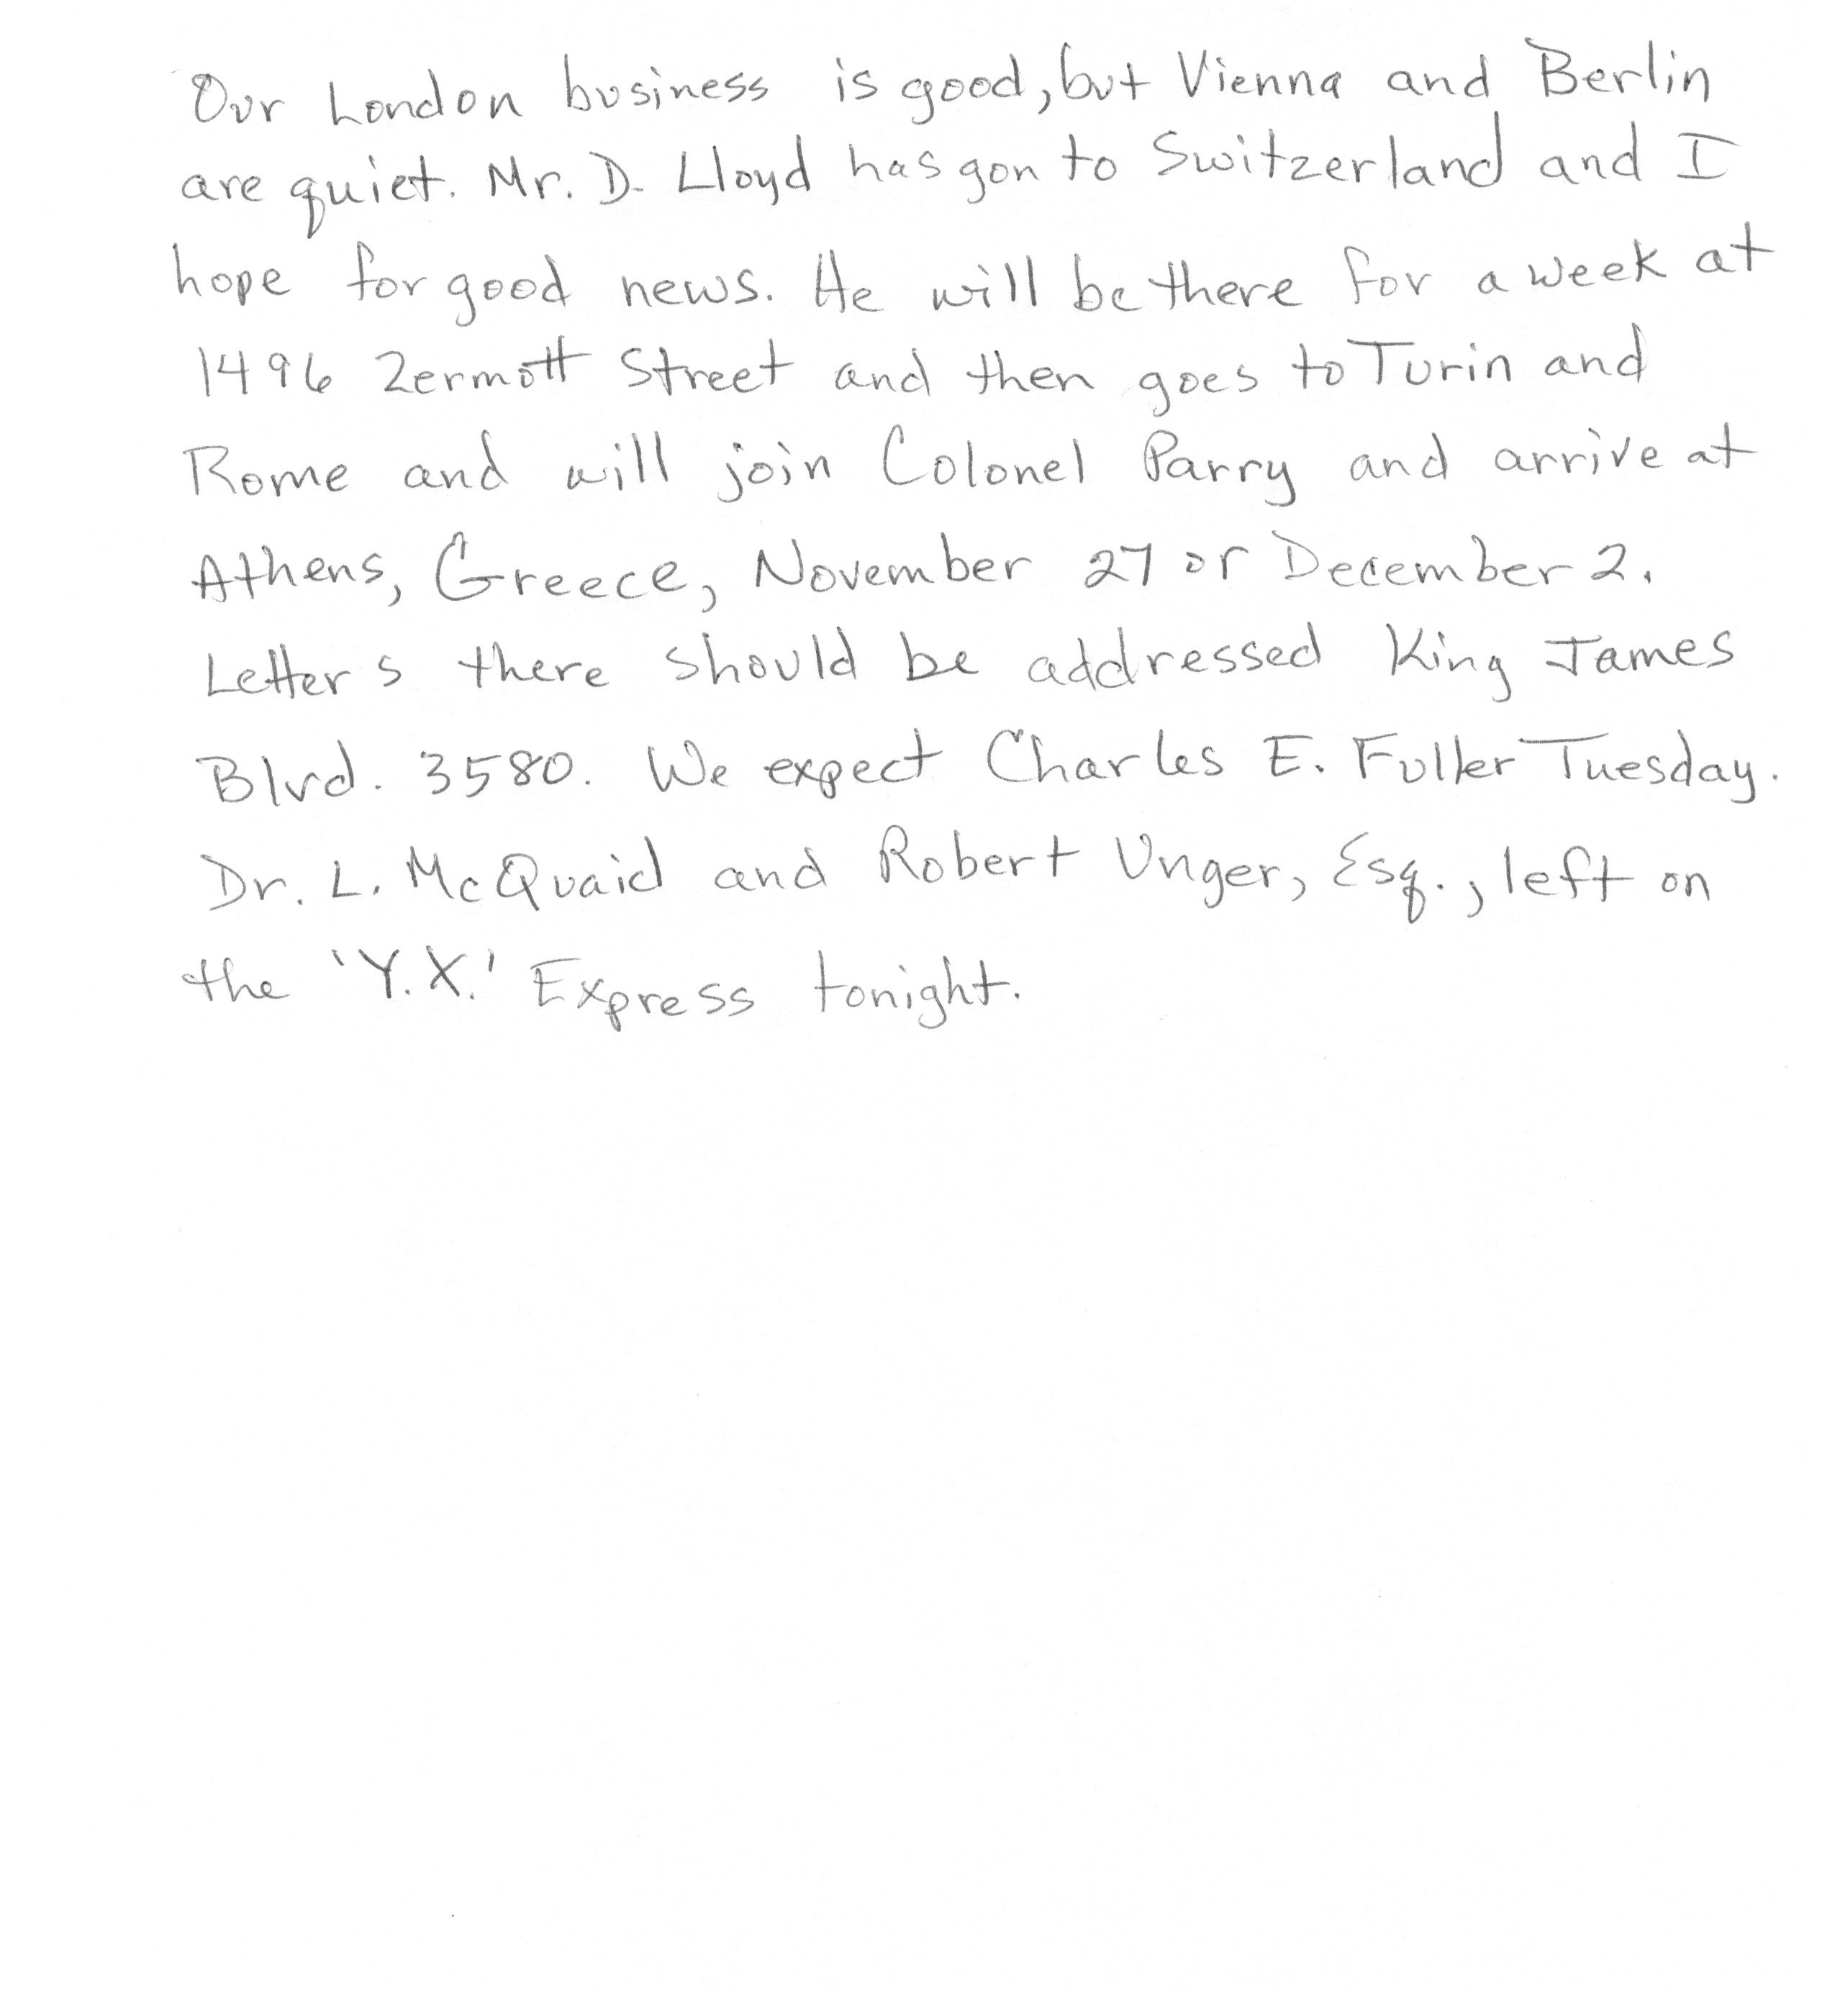 Our London business is good, but Vienna and Berlin
are quiet. Mr. D. Lloyd has gon to Switzerland and I
hope for good news. He will be there for a week at
1496 Zermott Street and then goes to Turin and
Rome and will join Colonel Parry and arrive at
Athens, Greece, November 27 or December 2.
Letters there should be addressed King James
Blvd. 3580. We expect Charles E. Fuller Tuesday.
Dr. L. McQuaid and Robert Unger, Esq., left on
the 'Y.X.' Express tonight.